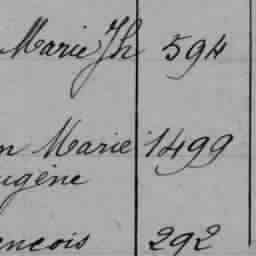 Marie Jh 594
n Marie 1499
ugène
ençois 292